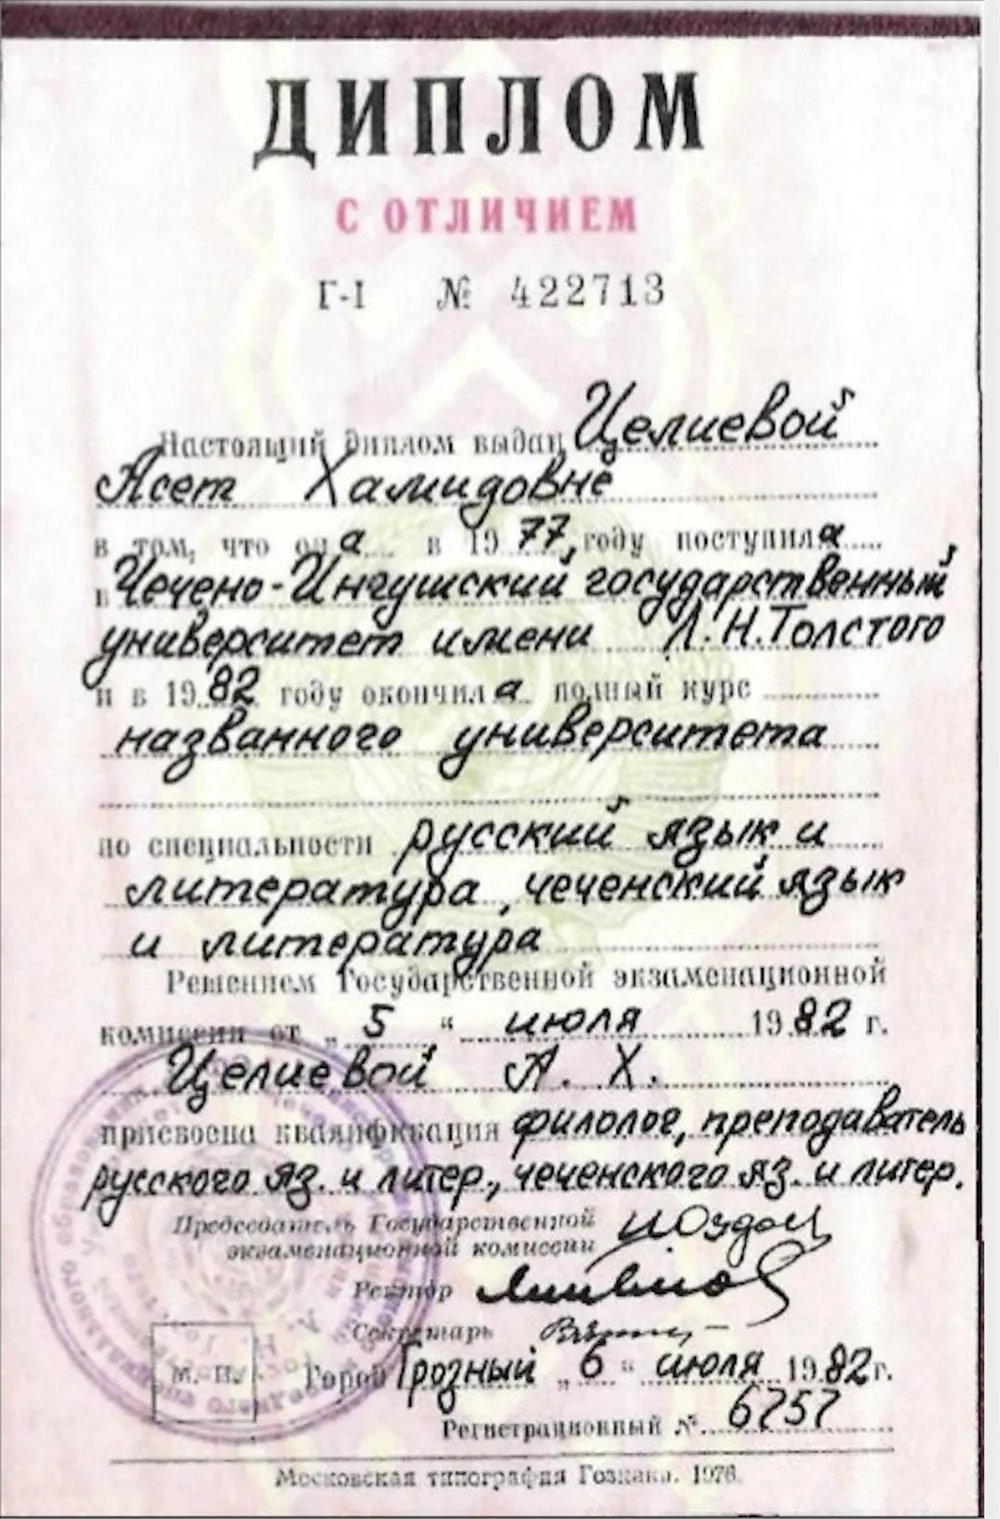 ДИПЛОМ
С ОТЛИЧИЕМ
Г-I № 422713
Настоящий диплом выдан Целиевой
Асет Хамидовне
в том, что она в 1977 году поступила
в Чечено-Ингушский государственный
университет имени Л.Н.Толстого
и в 1982 году окончила полный курс
названного университета
по специальности русский язык и
литература, чеченский язык
и литература
Решением Государственной экзаменационной
комиссии от „5“ июля 1982 г.
Целиевой А. Х.
присвоена квалификация филолог, преподаватель
русского яз. и литер., чеченского яз. и литер.
Председатель Государственной
экзаменационной комиссии
Ректор
Секретарь
М. П. Город Грозный „6“ июля 1982 г.
Регистрационный № 6757
Московская типография Гознака. 1976.